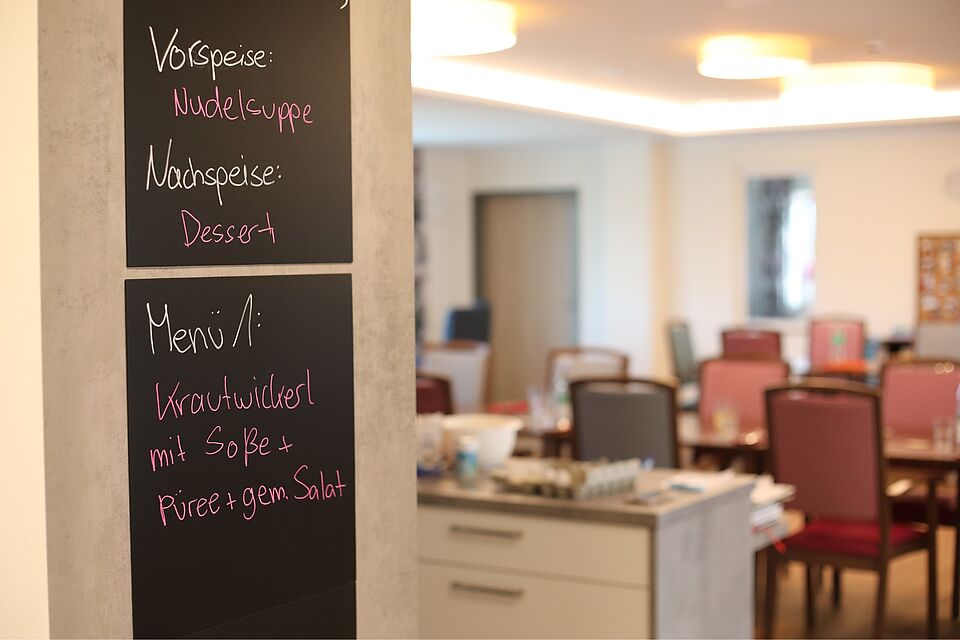 Vorspeise:
Nudelsuppe
Nachspeise:
Dessert
Menü 1:
Krautwickerl
mit Soße +
Püree + gem. Salat